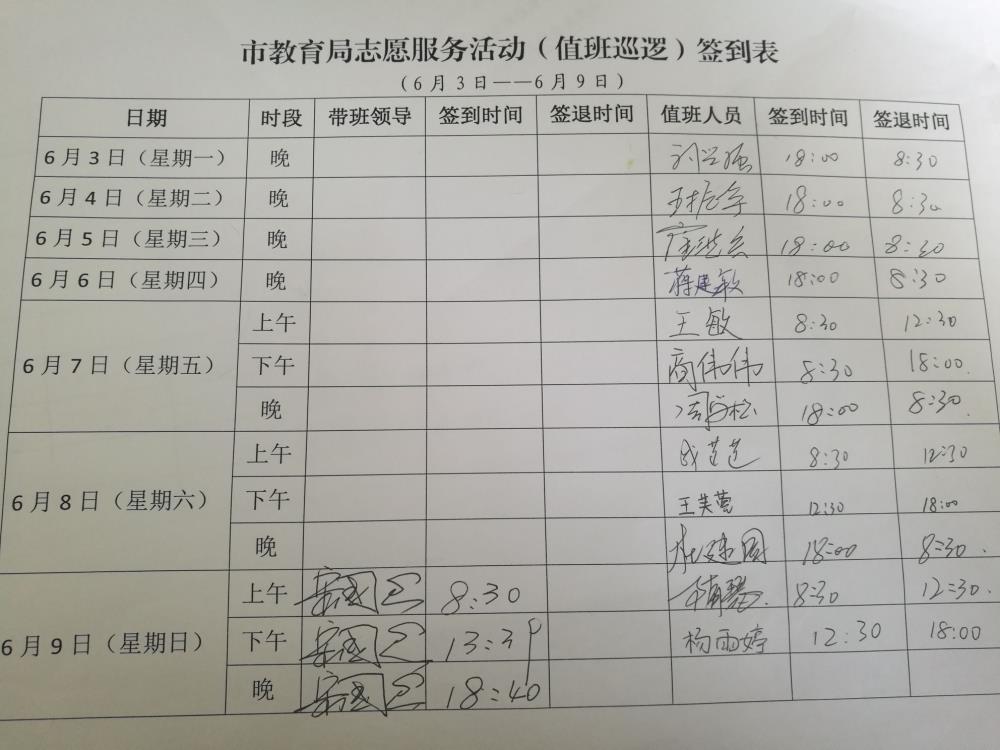 市教育局志愿服务活动（值班巡逻）签到表
（6月3日——6月9日）
日期 时段 带班领导 签到时间 签退时间 值班人员 签到时间 签退时间
6月3日（星期一） 晚 18:00 8:30
6月4日（星期二） 晚 18:00 8:30
6月5日（星期三） 晚 18:00 8:30
6月6日（星期四） 晚 蒋建敏 18:00 8:30
6月7日（星期五） 上午 王敏 8:30 12:30
下午 商伟伟 8:30 18:00.
晚 18:00 8:30.
6月8日（星期六） 上午 8:30 12:30
下午 王芙蓉 12:30 18:00
晚 18:00 8:30.
6月9日（星期日） 上午 8:30 8:30 12:30.
下午 杨雨婷 12:30 18:00
晚 18:40